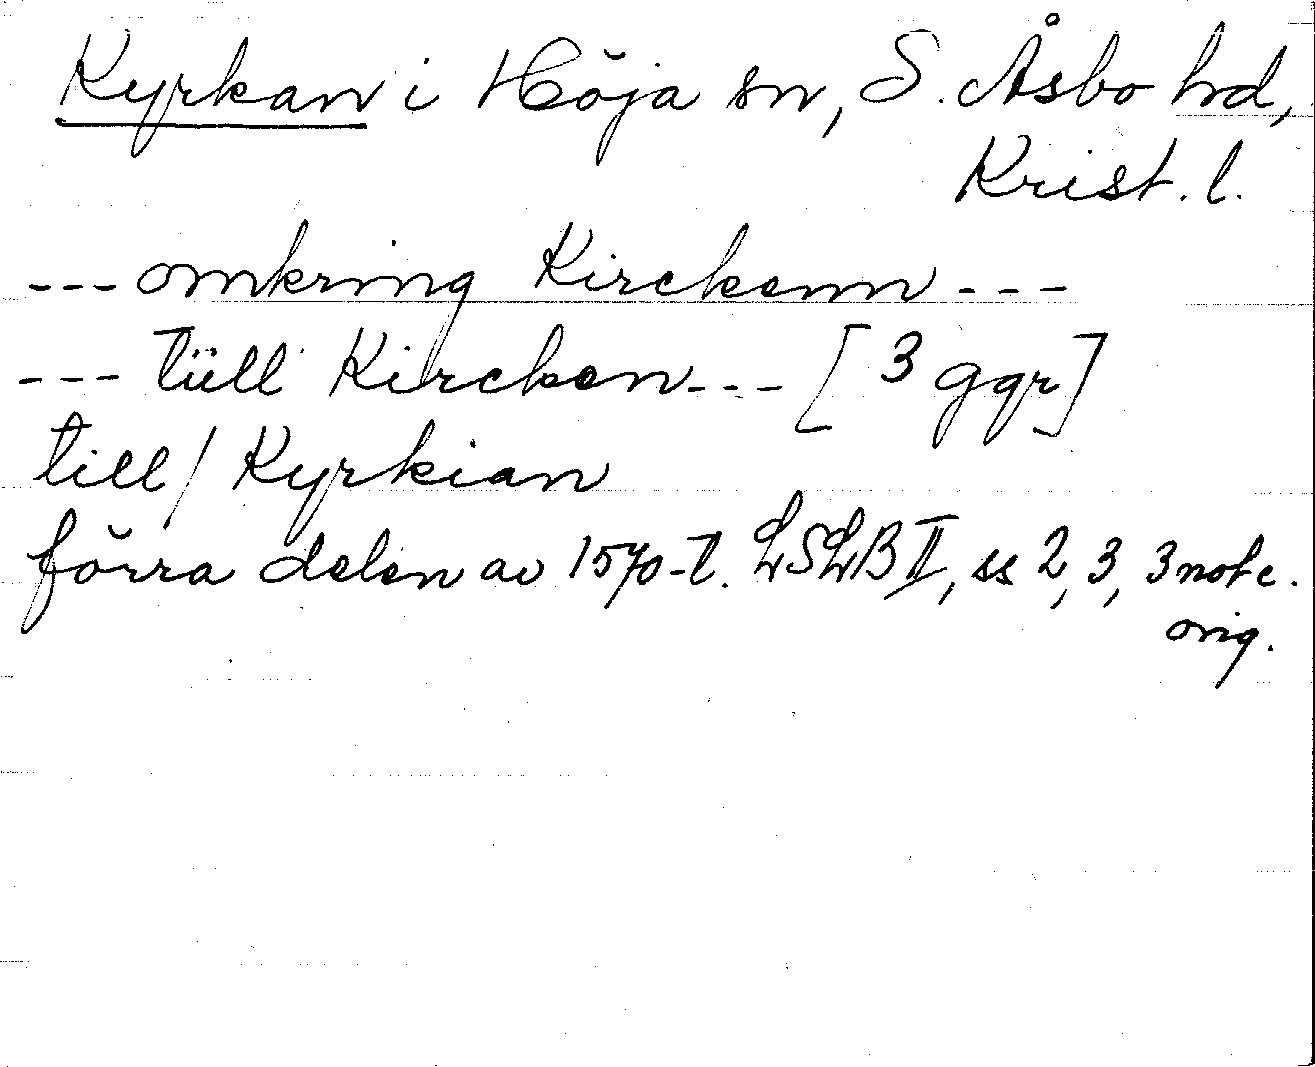 Kyrkan i Höja sn, S. Åsbo hd,
Krist. l.
--- omkring Kirckenn ---
--- tüll Kircken --- [3 ggr]
till / Kyrkian
förra delen av 1570-t. LSLB II, ss 2, 3, 3 not c.
orig.